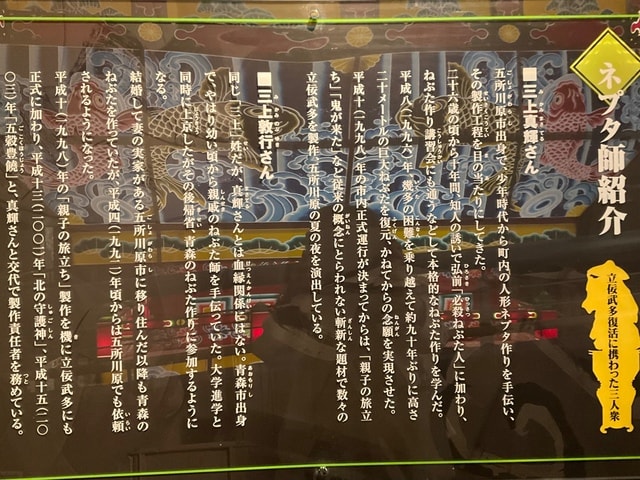 ネプタ師紹介
立佞武多復活に携わった三人衆
■三上真輝さん
五所川原市出身で、少年時代から町内の人形ネプタ作りを手伝い、
その製作工程を目の当たりにしてきた。
二十六歳の頃から十年間、知人の誘いで弘前「必殺ねぷた人」に加わり、
ねぷた作り講習会にも通うなどして本格的なねぷた作りを学んだ。
平成八(一九九六)年、幾多の困難を乗り越えて約九十年ぶりに高さ
二十メートルの巨大ねぷたを復元、かねてからの念願を実現させた。
平成十(一九九八)年の市内正式運行が決まってからは、「親子の旅立
ち」「鬼が来た」など従来の概念にとらわれない斬新な題材で数々の
立佞武多を製作、五所川原の夏の夜を演出している。
■三上敦行さん
同じ「三上」姓だが、真輝さんとは血縁関係にはない。青森市出身
で、やはり幼い頃から親戚のねぶた師を手伝っていた。大学進学と
同時に上京したがその後帰省、青森のねぶた作りに参加するように
なる。
結婚して妻の実家がある五所川原市に移り住んだ以降も青森の
ねぶたを作っていたが、平成四(一九九二)年頃からは五所川原でも依頼
されるようになった。
平成十(一九九八)年の「親子の旅立ち」製作を機に立佞武多にも
正式に加わり、平成十三(二〇〇一)年「北の守護神」、平成十五(二〇
〇三)年「五穀豊饒」と、真輝さんと交代で製作責任者を務めている。